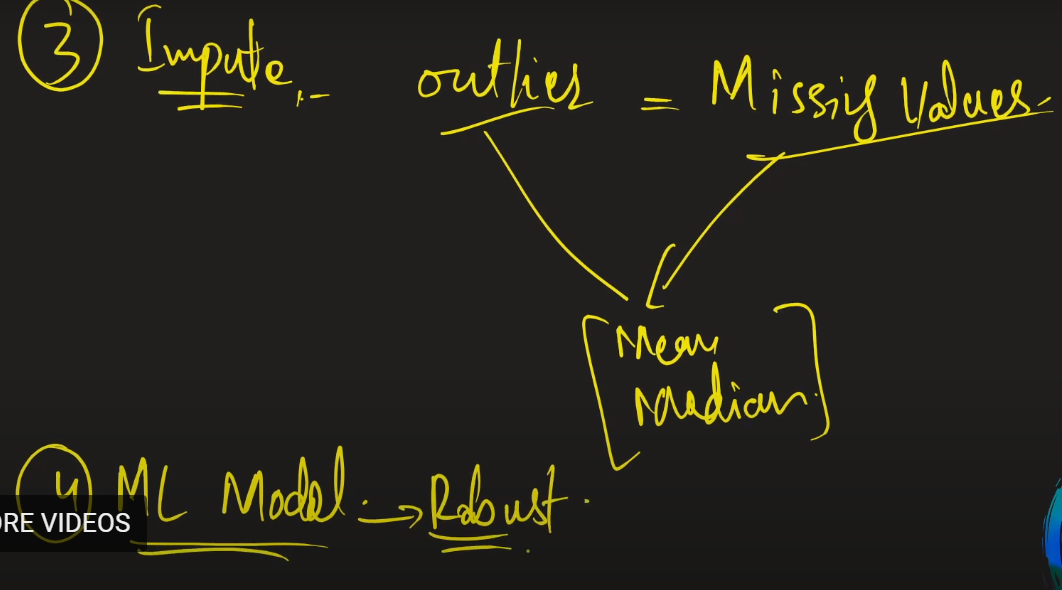 ③ Impute :- outlier = Missing Values.
[Mean
Median]
④ ML Model. → Robust.
ORE VIDEOS